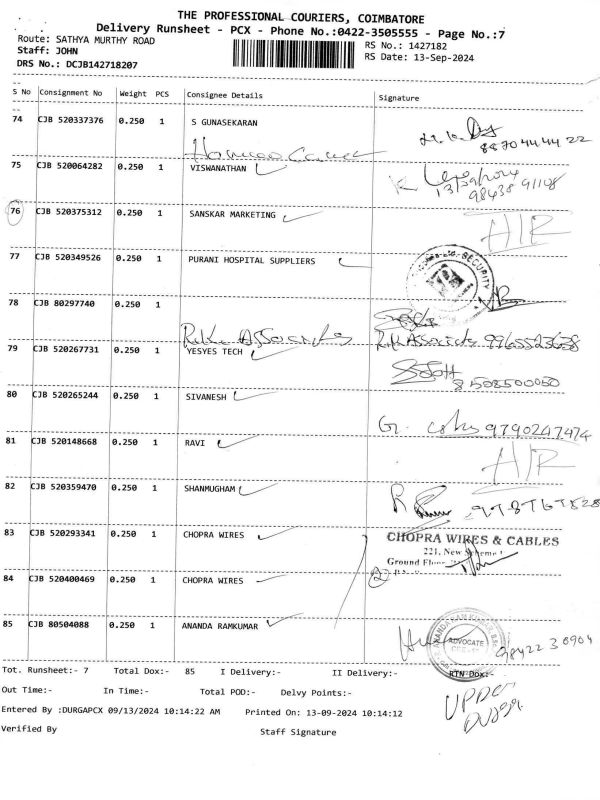 THE PROFESSIONAL COURIERS, COIMBATORE
Delivery Runsheet - PCX - Phone No.:0422-3505555 - Page No.:7
Route: SATHYA MURTHY ROAD
RS No.: 1427182
Staff: JOHN
RS Date: 13-Sep-2024
DRS No.: DCJB142718207
S No Consignment No Weight PCS Consignee Details Signature
74 CJB 520337376 0.250 1 S GUNASEKARAN
8870444422
75 CJB 520064282 0.250 1 VISWANATHAN
13/09/2024
98438 91108
76 CJB 520375312 0.250 1 SANSKAR MARKETING H/R
77 CJB 520349526 0.250 1 PURANI HOSPITAL SUPPLIERS
SECURITY
78 CJB 80297740 0.250 1
R.K. Associates R.K. Associates 9965523638
79 CJB 520267731 0.250 1 YESYES TECH
8508500050
80 CJB 520265244 0.250 1 SIVANESH
9790247474
81 CJB 520148668 0.250 1 RAVI
H/R
82 CJB 520359470 0.250 1 SHANMUGHAM
83 CJB 520293341 0.250 1 CHOPRA WIRES
CHOPRA WIRES & CABLES
221, New Scheme
Ground Floor
84 CJB 520400469 0.250 1 CHOPRA WIRES 2
85 CJB 80504088 0.250 1 ANANDA RAMKUMAR
ADVOCATE
Tot. Runsheet:- 7 Total Dox:- 85 I Delivery:- II Delivery:- RTN Dox:-
Out Time:- In Time:- Total POD:- Delvy Points:-
Entered By :DURGAPCX 09/13/2024 10:14:22 AM Printed On: 13-09-2024 10:14:12
Verified By Staff Signature